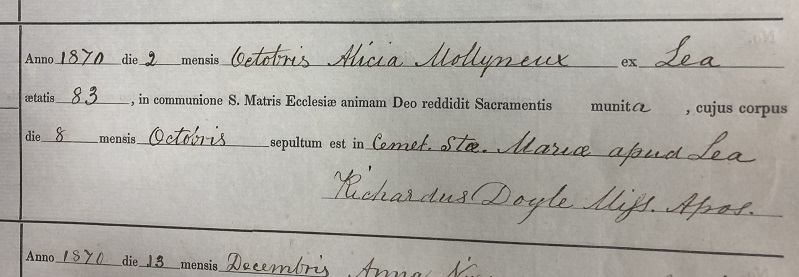 Anno 1870 die 2 mensis Octobris Alicia Mollyneux ex Lea
ætatis 83, in communione S. Matris Ecclesiæ animam Deo reddidit Sacramentis munita, cujus corpus
die 8 mensis Octobris sepultum est in Cemet. Stæ. Mariæ apud Lea
Richardus Doyle Miss. Apos.
Anno 1870 die 13 mensis Decembris Anna